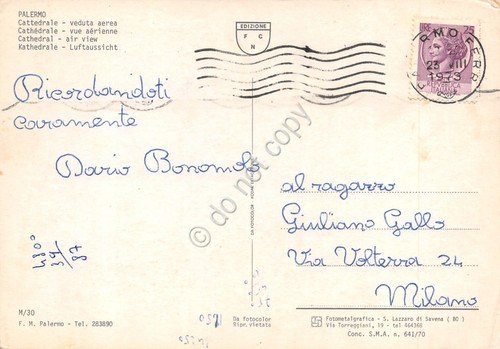 PALERMO
Cattedrale - veduta aerea
Cathédrale - vue aérienne
Cathedral - air view
Kathedrale - Luftaussicht
EDIZIONE
F C
N
23
1973
Ricordandoti
caramente
Dario Bonomolo
al ragazzo
Giuliano Gallo
Via Volterra 24
Milano
do not copy
M/30
F. M. Palermo - Tel. 283890
Da fotocolor
Ripr. vietata
Fotometalgrafica - S. Lazzaro di Savena ( BO )
Via Torreggiani, 19 - tel 464368
Conc. S.M.A. n. 641/70